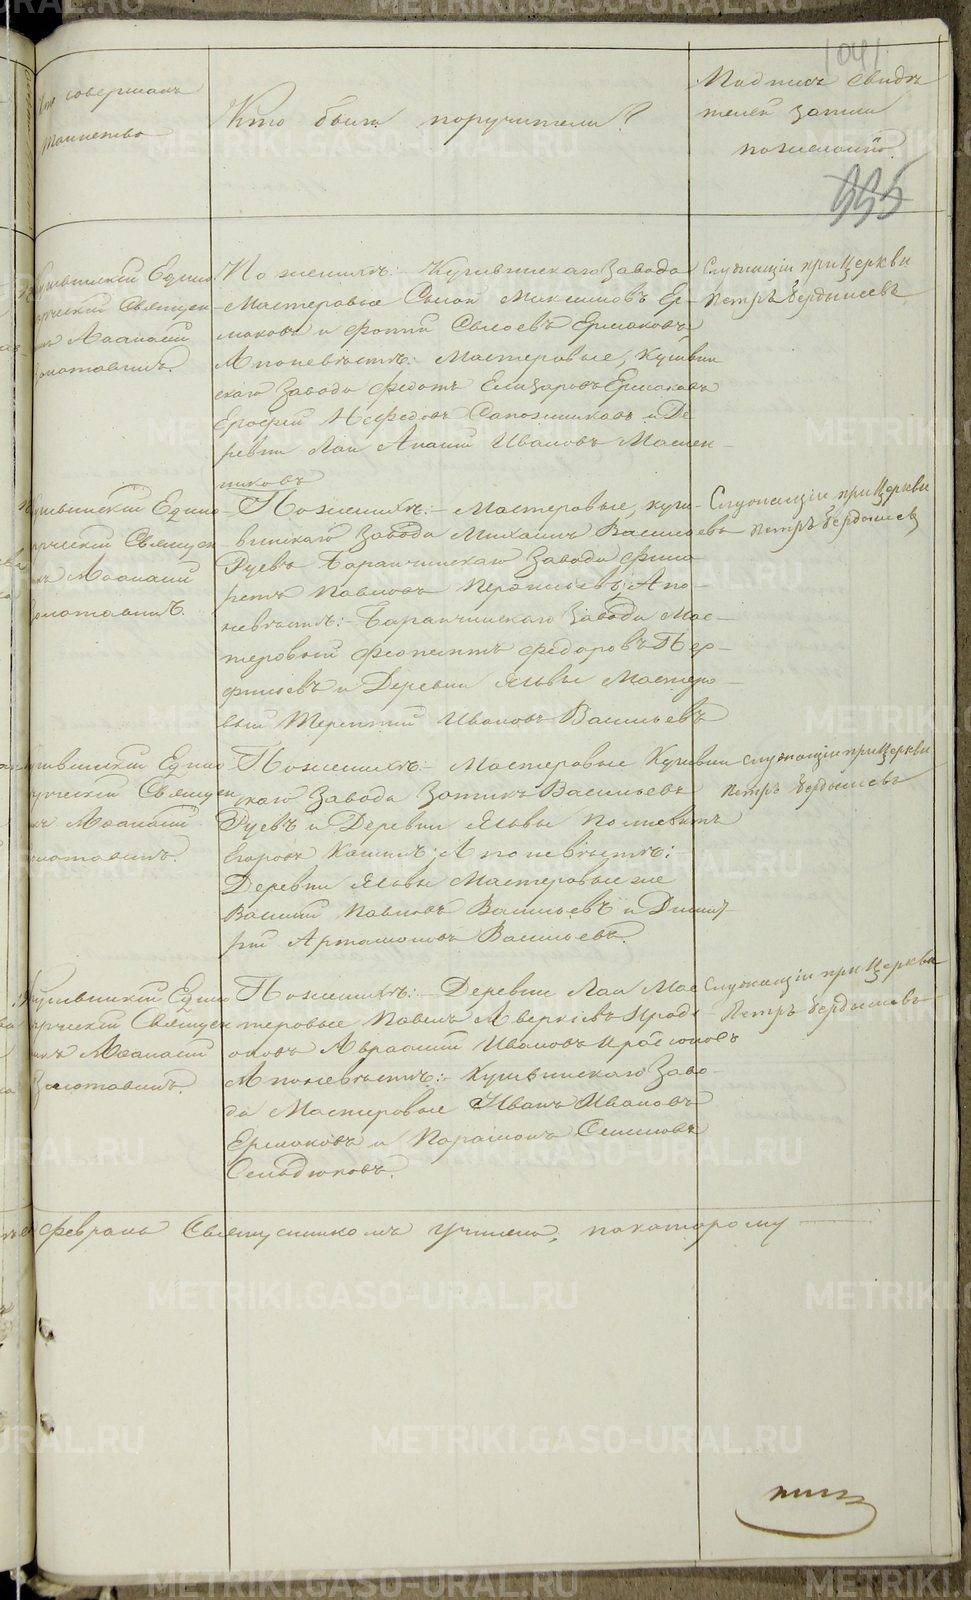 1041
Кто совершалъ
таинство
Кто были поручители?
Подпись свидѣ
телей записи
по желанію.
335
Кушвинскій Едино
вѣрческій Священ
никъ Афанасій
Золотавинъ.
По женихѣ: Кушвинскаго Завода
Мастеровые Сысой Максимовъ Ер
маковъ и Фотій Сысоевъ Ермаковъ,
А по невѣстѣ: Мастеровые, Кушвин
скаго Завода Федотъ Елизаровъ Ермаковъ
Ерофей Нефедовъ Сапожниковъ и Де
ревни Лаи Ананій Ивановъ Маслен
никовъ
Служащій при Церкви
Петръ Бердышевъ
Кушвинскій Едино
вѣрческій Священ
никъ Афанасій
Золотавинъ.
По женихѣ: Мастеровые, куш
винскаго Завода Михаилъ Васильевъ
Гуевъ Баранчинскаго Завода Фила
ретъ Павловъ А по
невѣстѣ: Баранчинскаго Завода Мас
теровый Феопемптъ Федоровъ Пер
филовъ и Деревни Яльвы Мастеро
вый Терентій Ивановъ Васильевъ
Служащій при Церкви
Петръ Бердышевъ
Кушвинскій Едино
вѣрческій Священ
никъ Афанасій
Золотавинъ.
По женихѣ: Мастеровые Кушвин
скаго Завода Зотикъ Васильевъ
Гуевъ и Деревни Яльвы Полиевктъ
Егоровъ Кошинъ; А по невѣстѣ:
Деревни Яльвы Мастеровые же
Василій Павловъ Васильевъ и Дмит
рій Артамоновъ Васильевъ.
Служащій при Церкви
Петръ Бердышевъ
Кушвинскій Едино
вѣрческій Священ
никъ Афанасій
Золотавинъ.
По женихѣ: Деревни Лаи Мас
теровые Павелъ Аверкіевъ
Авраамій Ивановъ
А по невѣстѣ: Кушвинскаго Заво
да Мастеровые Иванъ Ивановъ
Ермаковъ и Парамонъ Семеновъ
Сельдюковъ.
Служащій при Церкви
Петръ Бердышевъ
февраль Священникомъ учинена, по которому
METRIKI.GASO-URAL.RU